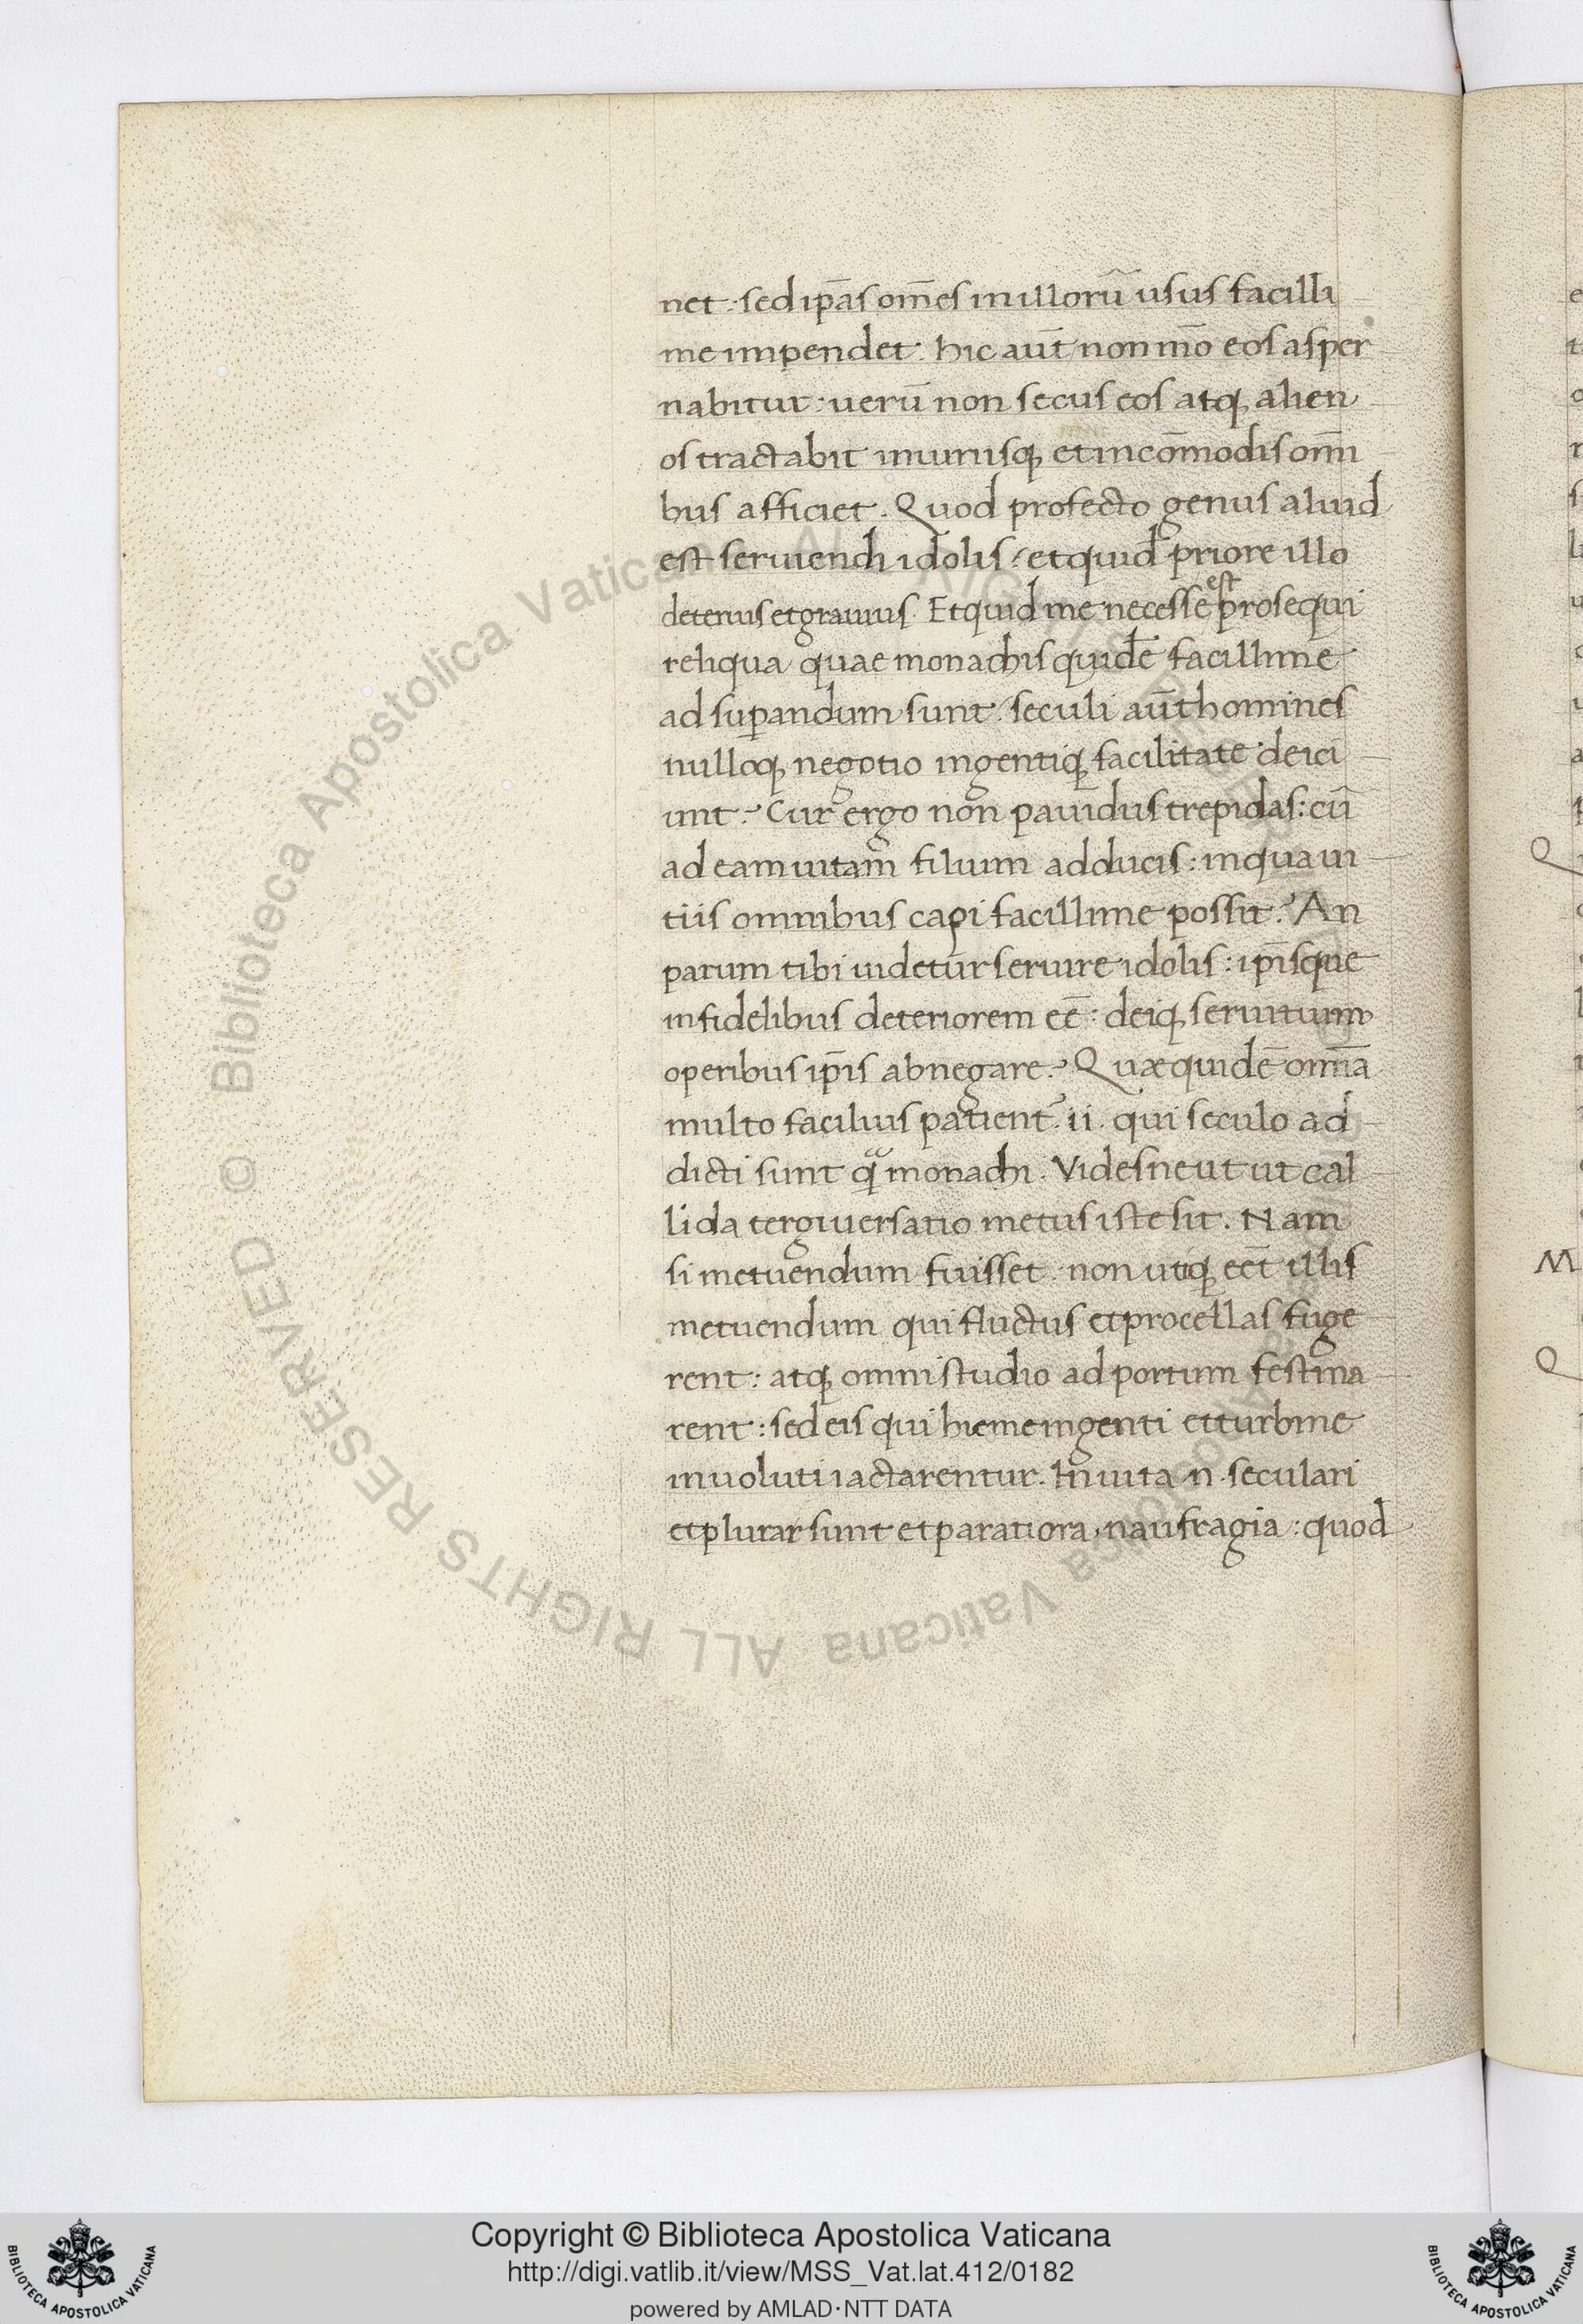 net: sed ip̄as om̄es in illorū usus facilli
me impendet. hic aut̄ non m̄o eos asper
nabitur: uerū non secus eos atq; alien
os tractabit iniuriisq; et incōmodis omī
bus afficiet. Quod profecto genus aliud
est seruiendi idolis: et quid priore illo
deterius et grauius. Et quid me necesse est prosequi
reliqua quae monachis quidē facillime
ad suꝑandum sunt: seculi aut̄ homines
nulloq; negotio ingentiq; facilitate deici
unt. Cur ergo non pauidus trepidas: cū
ad eam uitam filium adducis: in qua ui
tiis omnibus capi facillime possit. An
parum tibi uidetur seruire idolis: ip̄isque
infidelibus deteriorem eē: deiq; seruitium
operibus ip̄is abnegare. Quæ quidē omīa
multo facilius patient̄ ii. qui seculo ad
dicti sunt qᷓ monachi. Videsne ut ut cal
lida tergiuersatio metus iste sit. Nam
si metuendum fuisset. non utiq; eēt illis
metuendum qui fluctus et procellas fuge
rent: atq; omni studio ad portum festina
rent: sed eis qui hieme ingenti et turbine
inuoluti iactarentur. In uita n. seculari
et plurar sunt et paratiora naufragia: quod
© Biblioteca Apostolica Vaticana ALL RIGHTS RESERVED
Copyright © Biblioteca Apostolica Vaticana
http://digi.vatlib.it/view/MSS_Vat.lat.412/0182
powered by AMLAD·NTT DATA
BIBLIOTECA APOSTOLICA VATICANA
BIBLIOTECA APOSTOLICA VATICANA